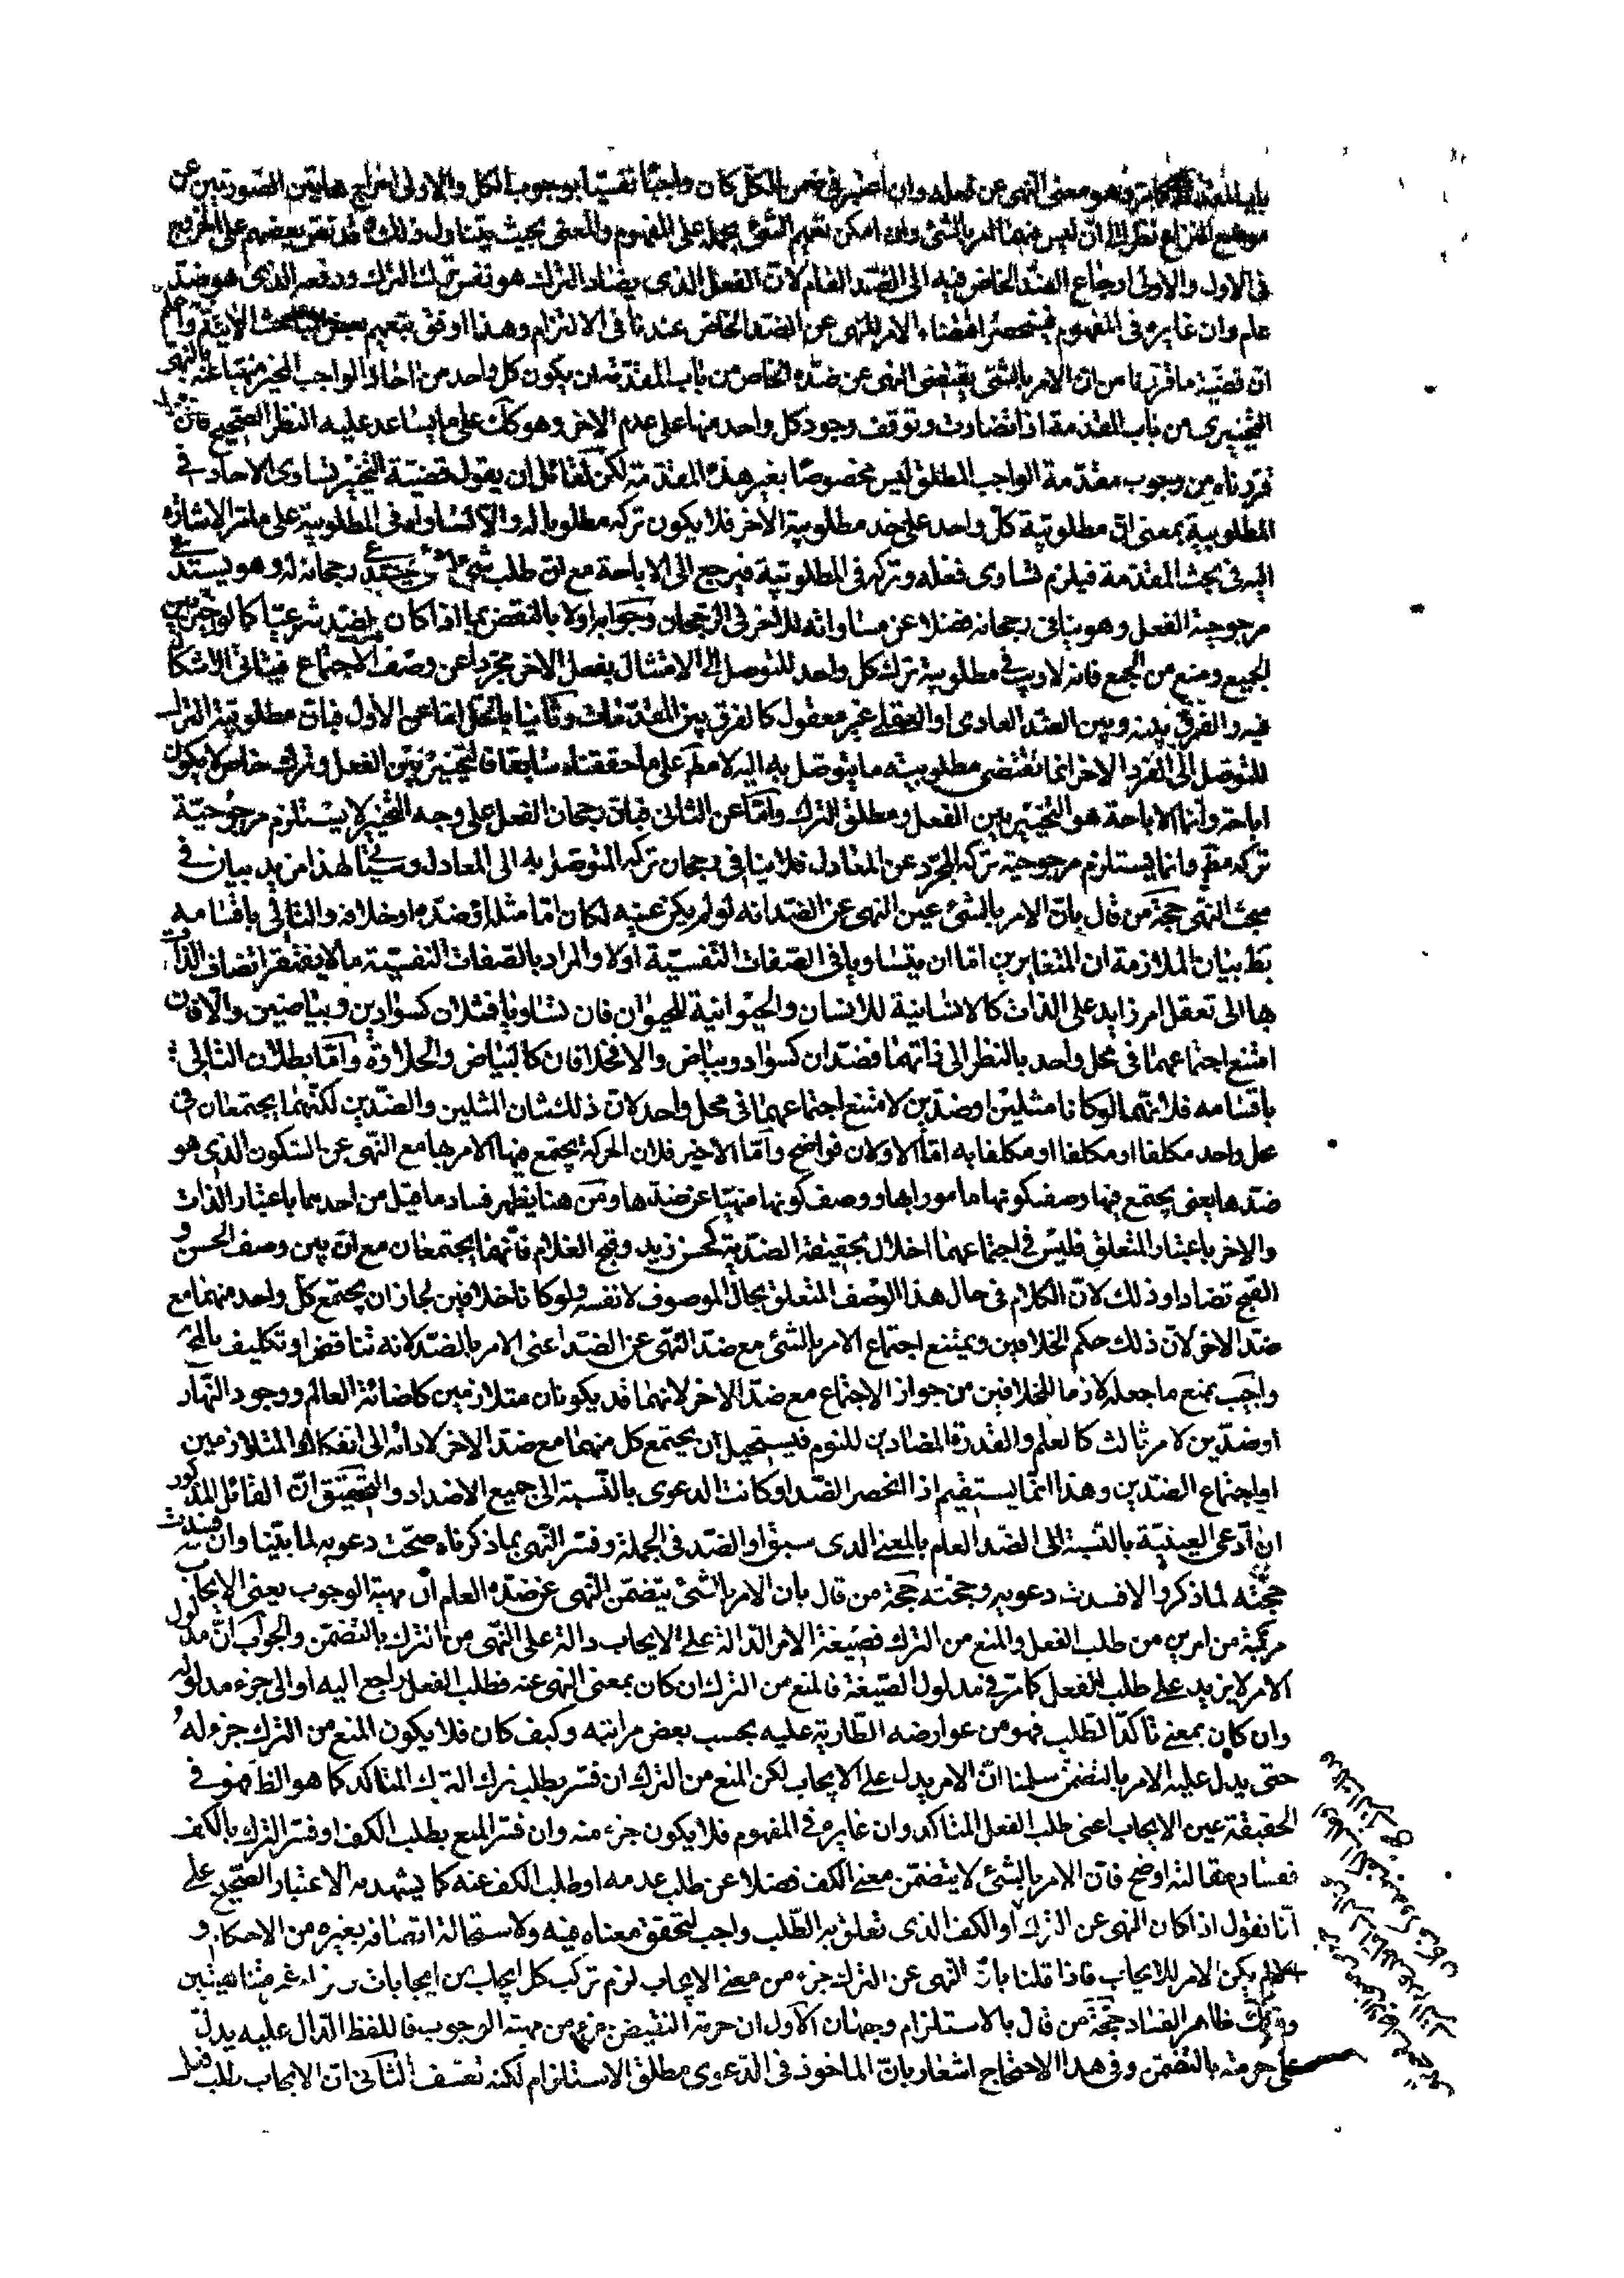 باب المقدمة كما مر وهو معنى النهى عن فعله وان اعتبر فى ضمن الكل كان واجبا نفسيا بوجوب الكل والاولى اخراج هاتين الصورتين عن
موضع النزاع نظرا الى ان ليس فيهما امر بالشئ وان امكن تعميم الشئ بحمله على المفهوم والمعنى بحيث يتناول ذلك وقد نص بعضهم على الخروج
فى الاول والاولى ارجاع الضد الخاص فيه الى الضد العام لان الفعل الذى يضاد الترك هو نفس ترك الترك ورفعه الذى هو ضد
عام وان غايره فى المفهوم فينحصر اقتضاء الامر للنهى عن الضد الخاص عندنا فى الالتزام وهذا اوفق بتعميم بعض مباحث الآتية واعلم
ان قضية ما قررنا من ان الامر بالشئ يقتضى النهى عن ضده الخاص من باب المقدمة ان يكون كل واحد من احاد الواجب المخير منهيا عنه بالنهى
التخييرى من باب المقدمة اذا تضادت وتوقف وجود كل واحد منها على عدم الاخر وهو كك على ما يساعد عليه النظر الصحيح فان ما
قررناه من وجوب مقدمة الواجب المطلق ليس مخصوصا بغير هذه المقدمة لكن لقائل ان يقول قضية التخيير تساوى الاحاد فى
المطلوبية بمعنى ان مطلوبية كل واحد على حد مطلوبية الاخر فلا يكون تركه مطلوبا له والا لساواه فى المطلوبية على ما مر الاشارة
اليه فى بحث المقدمة فيلزم تساوى فعله وتركه فى المطلوبية فيرجع الى الاباحة مع ان طلب شئ يستدعى رجحانه له وهو يستدعى
مرجوحية الفعل وهو ينافى رجحانه فضلا عن مساواته للاخر فى الرجحان وجوابه اولا بالنقض بما اذا كان الضد شرعيا كما لو خير بين
الجميع ومنع من الجمع فانه لا ريب فى مطلوبية ترك كل واحد للتوصل الى الامتثال بفعل الاخر مجردا عن وصف الاجتماع فيتاتى الاشكال
فيه والفرق بينه وبين الضد العادى او العقلى غير معقول كالفرق بين المقدمات وثانيا بالحل اما عن الاول فبان مطلوبية الترك
للتوصل الى الفرد الاخر انما تقتضى مطلوبيته ما يتوصل به اليه لا مطم على ما حققناه سابقا فالتخيير بين الفعل وترك خاص لا يكون
اباحة وانما الاباحة هو التخيير بين الفعل ومطلق الترك واما عن الثانى فبان رجحان الفعل على وجه التخيير لا يستلزم مرجوحية
تركه مطم وانما يستلزم مرجوحية تركه المجرد عن المعادل فلا ينافى رجحان تركه المتوصل به الى المعادل وسيجئ لهذا مزيد بيان فى
مبحث النهى حجة من قال بان الامر بالشئ عين النهى عن الضد انه لو لم يكن عينه لكان اما مثله او ضده او خلافه والتالى باقسامه
بط بيان الملازمة ان المتغايرين اما ان يتساويا فى الصفات النفسية اولا والمراد بالصفات النفسية ما لا يفتقر اتصاف الذات
بها الى تعقل امر زايد على الذات كالانسانية للانسان والحيوانية للحيوان فان تساويا فمثلان كسوادين وبياضين والا فان
امتنع اجتماعهما فى محل واحد بالنظر الى ذاتهما فضدان كسواد وبياض والا فخلافان كالبياض والحلاوة واما بطلان التالى
باقسامه فلانهما لو كانا مثلين او ضدين لامتنع اجتماعهما فى محل واحد لان ذلك شان المثلين والضدين لكنهما يجتمعان فى
محل واحد مكلفا او مكلفا او مكلفا به اما الاولان فواضح واما الاخير فلان الحركة يجتمع فيها الامر بها مع النهى عن السكون الذى هو
ضدها يعنى يجتمع فيها وصف كونها مامورا بها ووصف كونها منهيا عن ضدها ومن هنا يظهر فساد ما قيل من احدهما باعتبار الذات
والاخر باعتبار المتعلق فليس فى اجتماعهما اخلال بحقيقة الضدية كحسن زيد وقبح الغلام فانهما يجتمعان مع ان بين وصف الحسن و
القبح تضادا وذلك لان الكلام فى حال هذا الوصف المتعلق بحال الموصوف لا نفسه ولو كانا خلافين لجاز ان يجتمع كل واحد منهما مع
ضد الاخر لان ذلك حكم الخلافين ويمتنع اجتماع الامر بالشئ مع ضد النهى عن الضد اعنى الامر بالضد لانه تناقض او تكليف بالمح
واجيب بمنع ما جعله لازما للخلافين من جواز الاجتماع مع ضد الاخر لانهما قد يكونان متلازمين كاضائة العالم ووجود النهار
او ضدين لامر ثالث كالعلم والقدرة المضادين للنوم فيستحيل ان يجتمع كل منهما مع ضد الاخر لادائه الى انفكاك المتلازمين
او اجتماع الضدين وهذا انما يستقيم اذا انحصر الضد او كانت الدعوى بالنسبة الى جميع الاضداد والتحقيق ان القائل المذكور
ان ادعى العينية بالنسبة الى الضد العام بالمعنى الذى سبق او الضد فى الجملة وفسر النهى بما ذكرناه صحت دعويه لما بينا وان فسدت
حجته لما ذكروا والا فسدت دعويه وحجته حجة من قال بان الامر بالشئ يتضمن النهى عن ضده العام ان مهية الوجوب يعنى الايجاب
مركبة من امرين من طلب الفعل والمنع من الترك فصيغة الامر الدالة على الايجاب دالة على النهى من الترك بالتضمن والجواب ان مدلول
الامر لا يزيد على طلب الفعل كما مر فى مدلول الصيغة فالمنع من الترك ان كان بمعنى النهى عنه فطلب الفعل راجع اليه او الى جزء مدلوله
وان كان بمعنى تاكد الطلب فهو من عوارضه الطارية عليه بحسب بعض مراتبه وكيف كان فلا يكون المنع من الترك جزء له
حتى يدل عليه الامر بالتضمن سلمنا ان الامر يدل على الايجاب لكن المنع من الترك ان فسر بطلب ترك الترك المتاكد كما هو الظ فهو فى
الحقيقة عين الايجاب اعنى طلب الفعل المتاكد وان غايره فى المفهوم فلا يكون جزء منه وان فسر المنع بطلب الكف او فسر الترك بالكف
ففساد مقالته اوضح فان الامر بالشئ لا يتضمن معنى الكف فضلا عن طلب عدمه او طلب الكف عنه كما يشهد به الاعتبار الصحيح على
انا نقول اذا كان النهى عن الترك او الكف الذى تعلق به الطلب واجب لتحقق معناه فيه ولاستحالة اتصافه بغيره من الاحكام و
الا لم يكن الامر للايجاب فاذا قلنا بان النهى عن الترك جزء من معنى الايجاب لزم تركب كل ايجاب من ايجابات غير متناهية بين
وذلك ظاهر الفساد حجة من قال بالاستلزام وجهان الاول ان حرمة النقيض جزء من مهية الوجوب فاللفظ الدال عليه يدل
على حرمته بالتضمن وفى هذا الاحتجاج اشعار بان الماخوذ فى الدعوى مطلق الاستلزام لكنه تعسف الثانى ان الايجاب طلب فعل